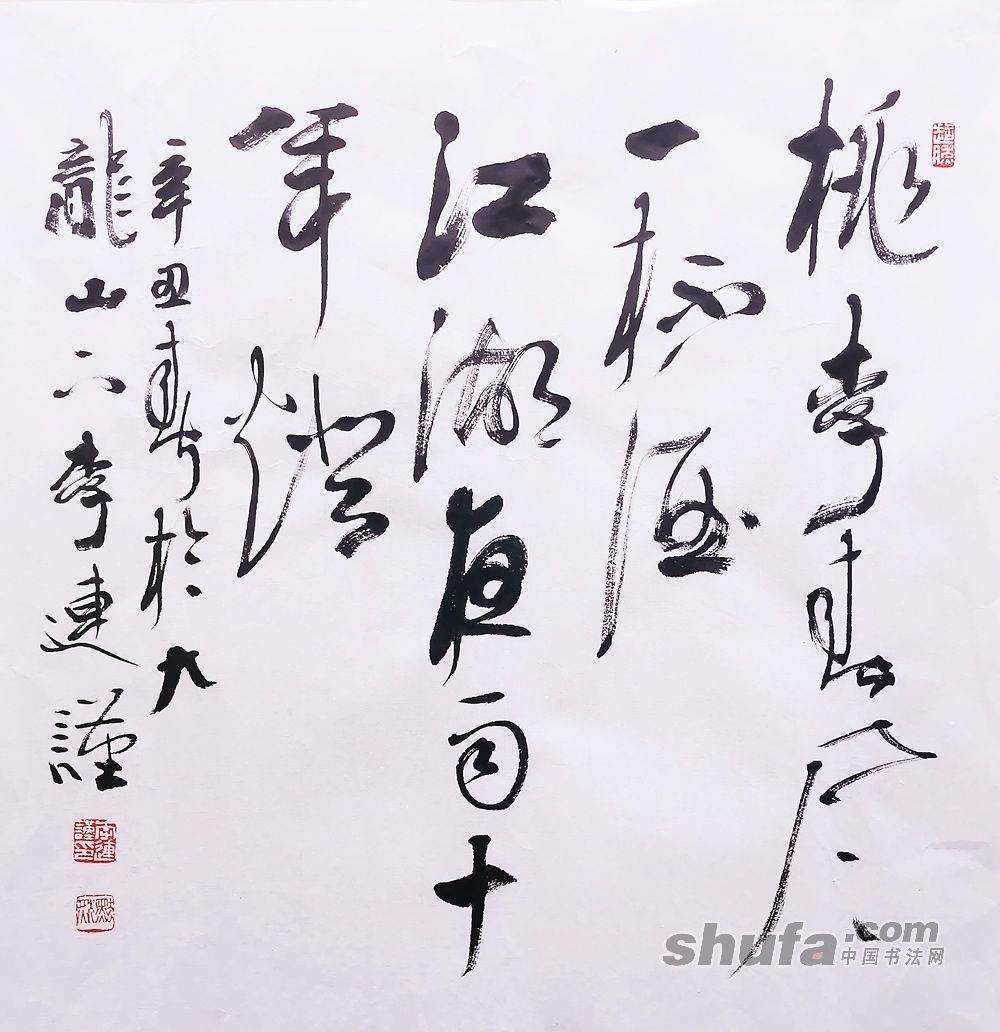 桃李春風
一杯酒
江湖夜雨十
年燈
辛丑春於九
龍山下李連謹
shufa.com
中国书法网